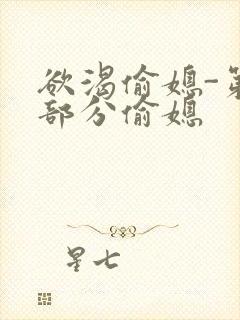 欲渴偷媳-第
部分偷媳
星七